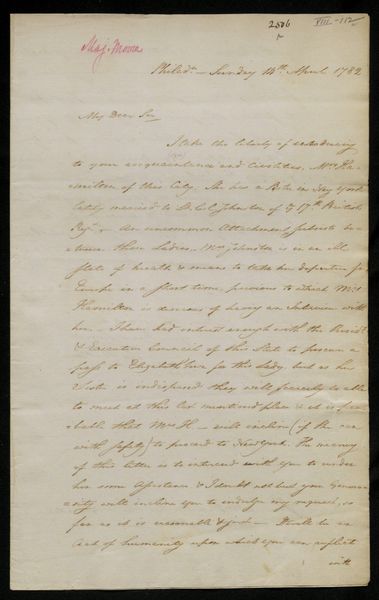 2506
VIII-112
Maj. Moore
Philada. — Sunday 14th. April 1782
My Dear Sir
I take the liberty of introducing
to your acquaintance and Civilities, Mrs. Ha-
milton of this City. She has a Sister in New York
lately married to Lt. Col. Johnston of ye 17th British
Regt. An uncommon Attachment subsists be-
tween these Ladies. Mrs. Johnston is in an ill
state of health & means to take her departure for
Europe in a short time, previous to which Mrs.
Hamilton is desirous of having an Interview with
her. I have had interest enough with the Presidt.
& Executive Council of this State to procure a
pass to Elizabeth Town for this Lady, but as her
Sister is indisposed they will scarcely be able
to meet at this last mentioned place & it is pro-
bable that Mrs. H— will incline (if she can
with safety) to proceed to New York. The meaning
of this letter is to intercede with you to render
her some Assistance & I doubt not but your Gener-
osity will incline you to indulge my request, so
far as it is reasonable & just — It will be an
Act of humanity upon which you can reflect
with